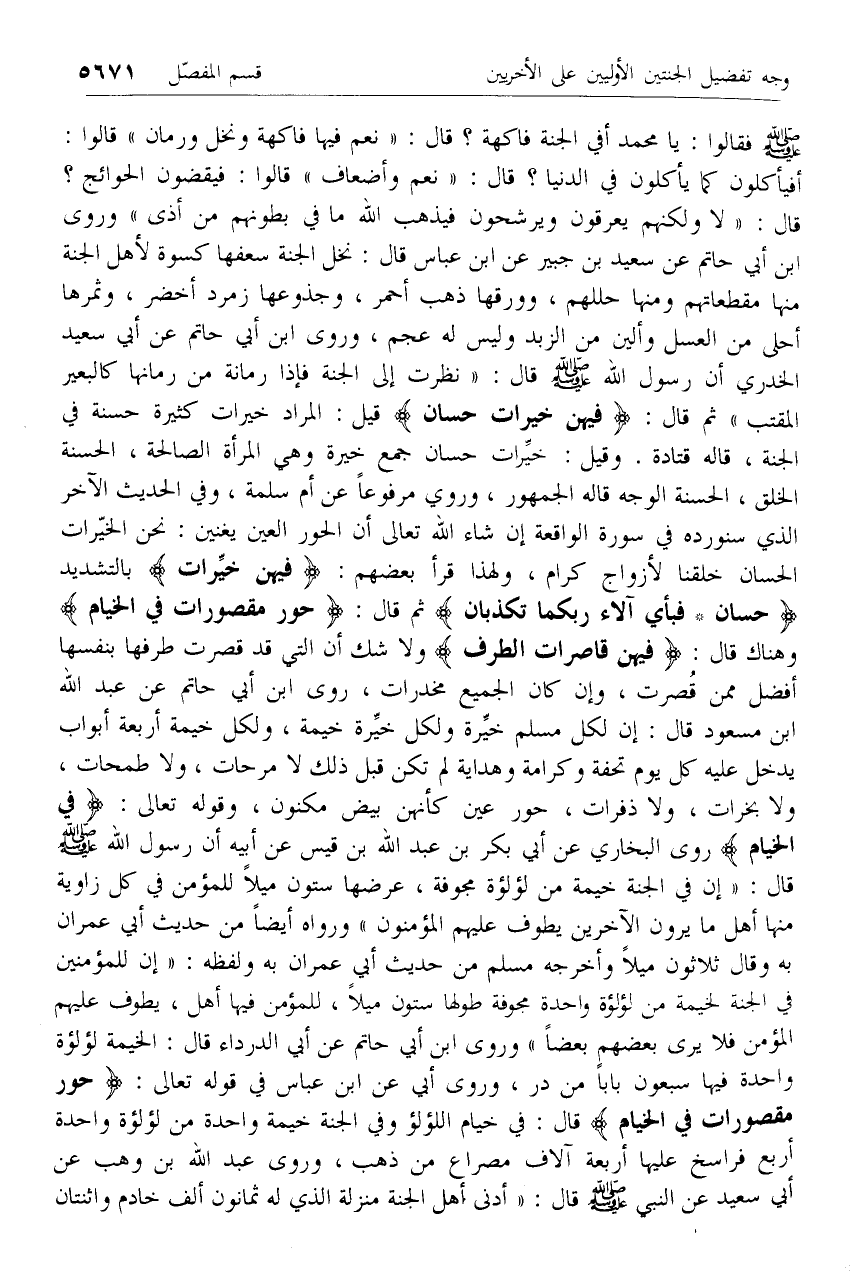 وجه تفضيل الجنتين الأوليين على الأخريين قسم المفصّل ٥٦٧١
ﷺ فقالوا : يا محمد أفي الجنة فاكهة ؟ قال : « نعم فيها فاكهة ونخل ورمان » قالوا :
أفيأكلون كما يأكلون في الدنيا ؟ قال : « نعم وأضعاف » قالوا : فيقضون الحوائج ؟
قال : « لا ولكنهم يعرقون ويرشحون فيذهب الله ما في بطونهم من أذى » وروى
ابن أبي حاتم عن سعيد بن جبير عن ابن عباس قال : نخل الجنة سعفها كسوة لأهل الجنة
منها مقطعاتهم ومنها حللهم ، وورقها ذهب أحمر ، وجذوعها زمرد أخضر ، وثمرها
أحلى من العسل وألين من الزبد وليس له عجم ، وروى ابن أبي حاتم عن أبي سعيد
الخدري أن رسول الله ﷺ قال : « نظرت إلى الجنة فإذا رمانة من رمانها كالبعير
المقتب » ثم قال : ﴿ فيهن خيرات حسان ﴾ قيل : المراد خيرات كثيرة حسنة في
الجنة ، قاله قتادة . وقيل : خيِّرات حسان جمع خيرة وهي المرأة الصالحة ، الحسنة
الخلق ، الحسنة الوجه قاله الجمهور ، وروي مرفوعاً عن أم سلمة ، وفي الحديث الآخر
الذي سنورده في سورة الواقعة إن شاء الله تعالى أن الحور العين يغنين : نحن الخيّرات
الحسان خلقنا لأزواج كرام ، ولهذا قرأ بعضهم : ﴿ فيهن خيِّرات ﴾ بالتشديد
﴿ حسان * فبأي آلاء ربكما تكذبان ﴾ ثم قال : ﴿ حور مقصورات في الخيام ﴾
وهناك قال : ﴿ فيهن قاصرات الطرف ﴾ ولا شك أن التي قد قصرت طرفها بنفسها
أفضل ممن قُصرت ، وإن كان الجميع مخدرات ، روى ابن أبي حاتم عن عبد الله
ابن مسعود قال : إن لكل مسلم خيِّرة ولكل خيِّرة خيمة ، ولكل خيمة أربعة أبواب
يدخل عليه كل يوم تحفة وكرامة وهداية لم تكن قبل ذلك لا مرحات ، ولا طمحات ،
ولا بخرات ، ولا ذفرات ، حور عين كأنهن بيض مكنون ، وقوله تعالى : ﴿ في
الخيام ﴾ روى البخاري عن أبي بكر بن عبد الله بن قيس عن أبيه أن رسول الله ﷺ
قال : « إن في الجنة خيمة من لؤلؤة مجوفة ، عرضها ستون ميلاً للمؤمن في كل زاوية
منها أهل ما يرون الآخرين يطوف عليهم المؤمنون » ورواه أيضاً من حديث أبي عمران
به وقال ثلاثون ميلاً وأخرجه مسلم من حديث أبي عمران به ولفظه : « إن للمؤمنين
في الجنة لخيمة من لؤلؤة واحدة مجوفة طولها ستون ميلاً ، للمؤمن فيها أهل ، يطوف عليهم
المؤمن فلا يرى بعضهم بعضاً » وروى ابن أبي حاتم عن أبي الدرداء قال : الخيمة لؤلؤة
واحدة فيها سبعون باباً من در ، وروى أبي عن ابن عباس في قوله تعالى : ﴿ حور
مقصورات في الخيام ﴾ قال : في خيام اللؤلؤ وفي الجنة خيمة واحدة من لؤلؤة واحدة
أربع فراسخ عليها أربعة آلاف مصراع من ذهب ، وروى عبد الله بن وهب عن
أبي سعيد عن النبي ﷺ قال : « أدنى أهل الجنة منزلة الذي له ثمانون ألف خادم واثنتان